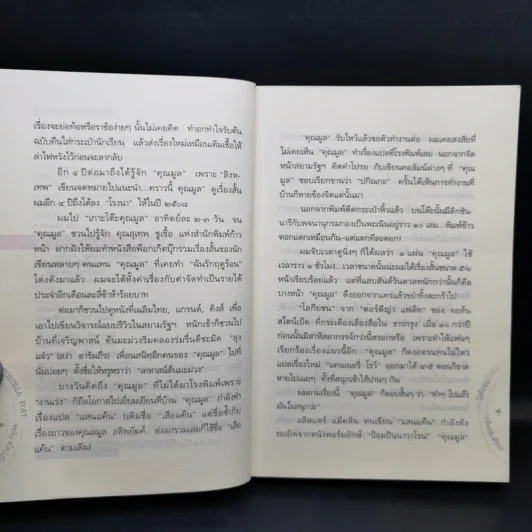 เรื่องจะย่อท้อหรือราข้อง่ายๆ นั้นไม่เคยคิด ทำอกทำใจรับต้น
ฉบับคืนใส่กระเป๋านักเรียน แล้วส่งเรื่องใหม่เหมือนเติมเชื้อให้
ล่าไฟหวังไว้ก่อนจะลากลับ
อีก ๔ ปีต่อมาถึงได้รู้จัก "คุณมูล" เพราะ "สิงห-
เทพ" เขียนจดหมายไปแนะนำ...คราวนี้ คุณมูล" ดูเรื่องสั้น
ผมอีก ๔ ปีถึงได้ลง "โรงนา" ให้ในปี ๒๕๐๘
ผมไป "เกาะโต๊ะคุณมูล" อาทิตย์ละ ๒-๓ วัน จน
"คุณมูล" ชวนไปรู้จัก คุณสุเทพ ชูเชื้อ แห่งสำนักพิมพ์ก้าว
หน้า ฝากฝังให้ผมทำหนังสือพ็อกเก็ตบุ๊กรวมเรื่องสั้นของนัก
เขียนหลายๆ คนแทน "คุณมูล" ที่เคยทำ "ฉันรักฤดูร้อน"
โด่งดังมาแล้ว ผมจะได้ทั้งค่าเรื่องกับค่าจัดทำเป็นรายได้
ประจำอีกเดือนละสี่ซ้าห้าร้อยบาท
ต่อมาก็ชวนไปดูหนังที่เฉลิมไทย, แกรนด์, คิงส์ เพื่อ
เอาไปเขียนวิจารณ์แบบรีวิวในสยามรัฐฯ หนักเข้าก็ชวนไป
บ้านที่เจริญพาศน์ ต้นมะม่วงริมคลองร่มรื่นดีชะมัด "ลุง
แจ๋ว" (สง่า อารัมภีร) เพื่อนสนิทอีกคนของ "คุณมูล" ไปที่
นั่นบ่อยๆ ตั้งชื่อให้หรูหราว่า "เคหาสน์ต้นมะม่วง"
บางวันคิดถึง "คุณมูล" ที่ไม่ได้มาโรงพิมพ์เพราะ
"งานเร่ง" ก็ถือโอกาสไปเยี่ยมเยียนที่บ้าน "คุณมูล" กำลังทำ
เรื่องแปล "แสนแค้น" (เดิมชื่อ "เสือแค้น" แต่ชื่อซ้ำกับ
เรื่องยาวของคุณสมุล อติพยัคฆ์ ต่อมารวมเล่มก็ใช้ชื่อ "เสือ
แค้น" ตามเดิม)
"คุณมูล" รับไหว้แล้วขอตัวทำงานต่อ ผมเคยสงสัยที่
ไม่เคยเห็น "คุณมูล" ทำเรื่องแปลที่โรงพิมพ์เลย นอกจากจัด
หน้าสยามรัฐฯ คิดคำโปรย กับเขียนคอลัมน์ต่างๆ ที่ "คุณ
มูล" ชอบเรียกขานว่า "ปกิณกะ" ครั้นได้เห็นการทำงานที่
บ้านก็หายข้องจิตแต่นั้นมา
นอกจากพิมพ์ดีดกระเป๋าหิ้วแล้ว บนโต๊ะนั้นมีดิกชัน-
นารีกับพจนานุกรมกองเป็นพะเนินอยู่ราว ๑๐ เล่ม...พิมพ์ช้าๆ
ดอกแดกเหมือนกัน-แต่แดกทีละดอก!
ผมจับเวลาดูนิ่งๆ ก็ได้ผลว่า ๑ แผ่น "คุณมูล" ใช้
เวลาราว ๑ ชั่วโมง...เวลาขนาดนั้นน่ะผมได้เรื่องสั้นขนาด ๕-๖
หน้าเรียบร้อยแล้ว แต่ที่แสบสันต์วันดวลหนักกว่านั้นก็คือ
บางหน้า "คุณมูล" ดึงออกจากแคร่แล้วขยำทิ้งตะกร้าไป
"โลกียชน" จาก "ตอร์ติญ่า แฟล็ท" ของ จอห์น
สไตน์เบ็ค ที่กระเดื่องเลื่องลือใน ชาวกรุง เมื่อ ๑๐ กว่าปี
ก่อนนั้นมีสาหัสสากรรจ์กว่านี้หรอกหรือ เพราะทำให้แฟนๆ
เรียกร้องเรื่องแนวนี้อีก "คุณมูล" ก็คงอดรนทนไม่ไหว
แปลเรื่องใหม่ "แคนเนอรี่ โรว์" ออกมาได้ ๔-๕ ตอนก็ขาด
หายไปเฉยๆ ทั้งที่สนุกเข้าไส้ปานๆ กัน
ผมถามเรื่องนี้ "คุณมูล" ก็ตอบสั้นๆ ว่า "ทำๆ ไปแล้ว
มันไม่สนุกว่ะ"
อลิสแตร์ แม็คลีน คนเขียน "แสนแค้น" กำลังดัง
ระเบิดจากหนังฟอร์มยักษ์ "ป้อมปืนนาวาโรน" "คุณมูล"